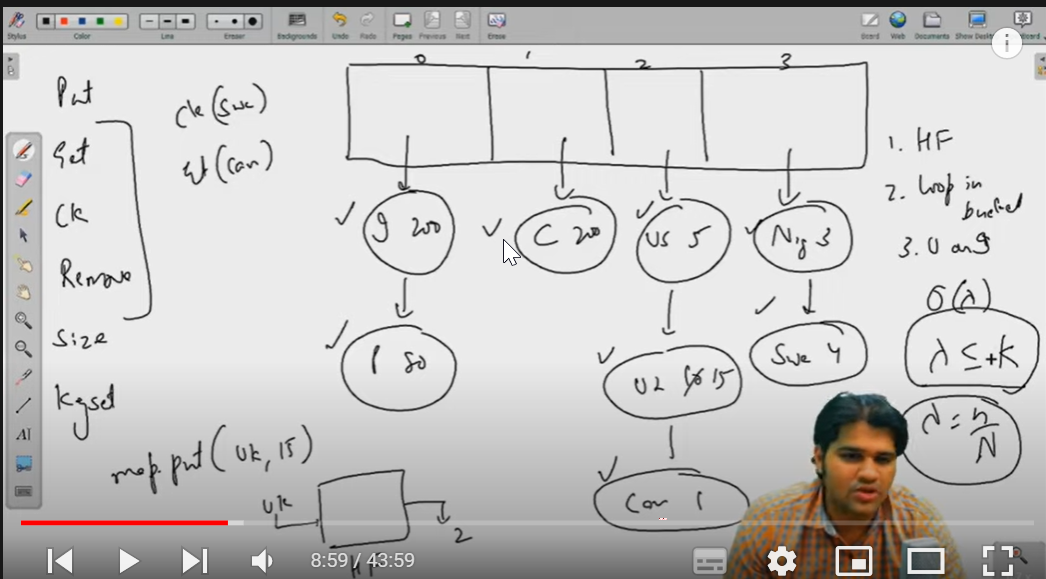 Stylus
Color
Line
Eraser
Backgrounds
Undo
Redo
Pages
Previous
Next
Erase
Board
Web
Documents
Show Desktop
i
0 1 2 3
Put
Get
Ck
Remove
Size
Keyset
Ck (Swe)
Get (Can)
I 200
P 80
C 200
US 5
UK 10 15
Can 1
Nig 3
Swe 4
1. HF
2. loop in
bucket
3. U and
O(λ)
λ ≤ +K
λ = n/N
map.put (UK, 15)
UK
2
HF
AI
8:59 / 43:59